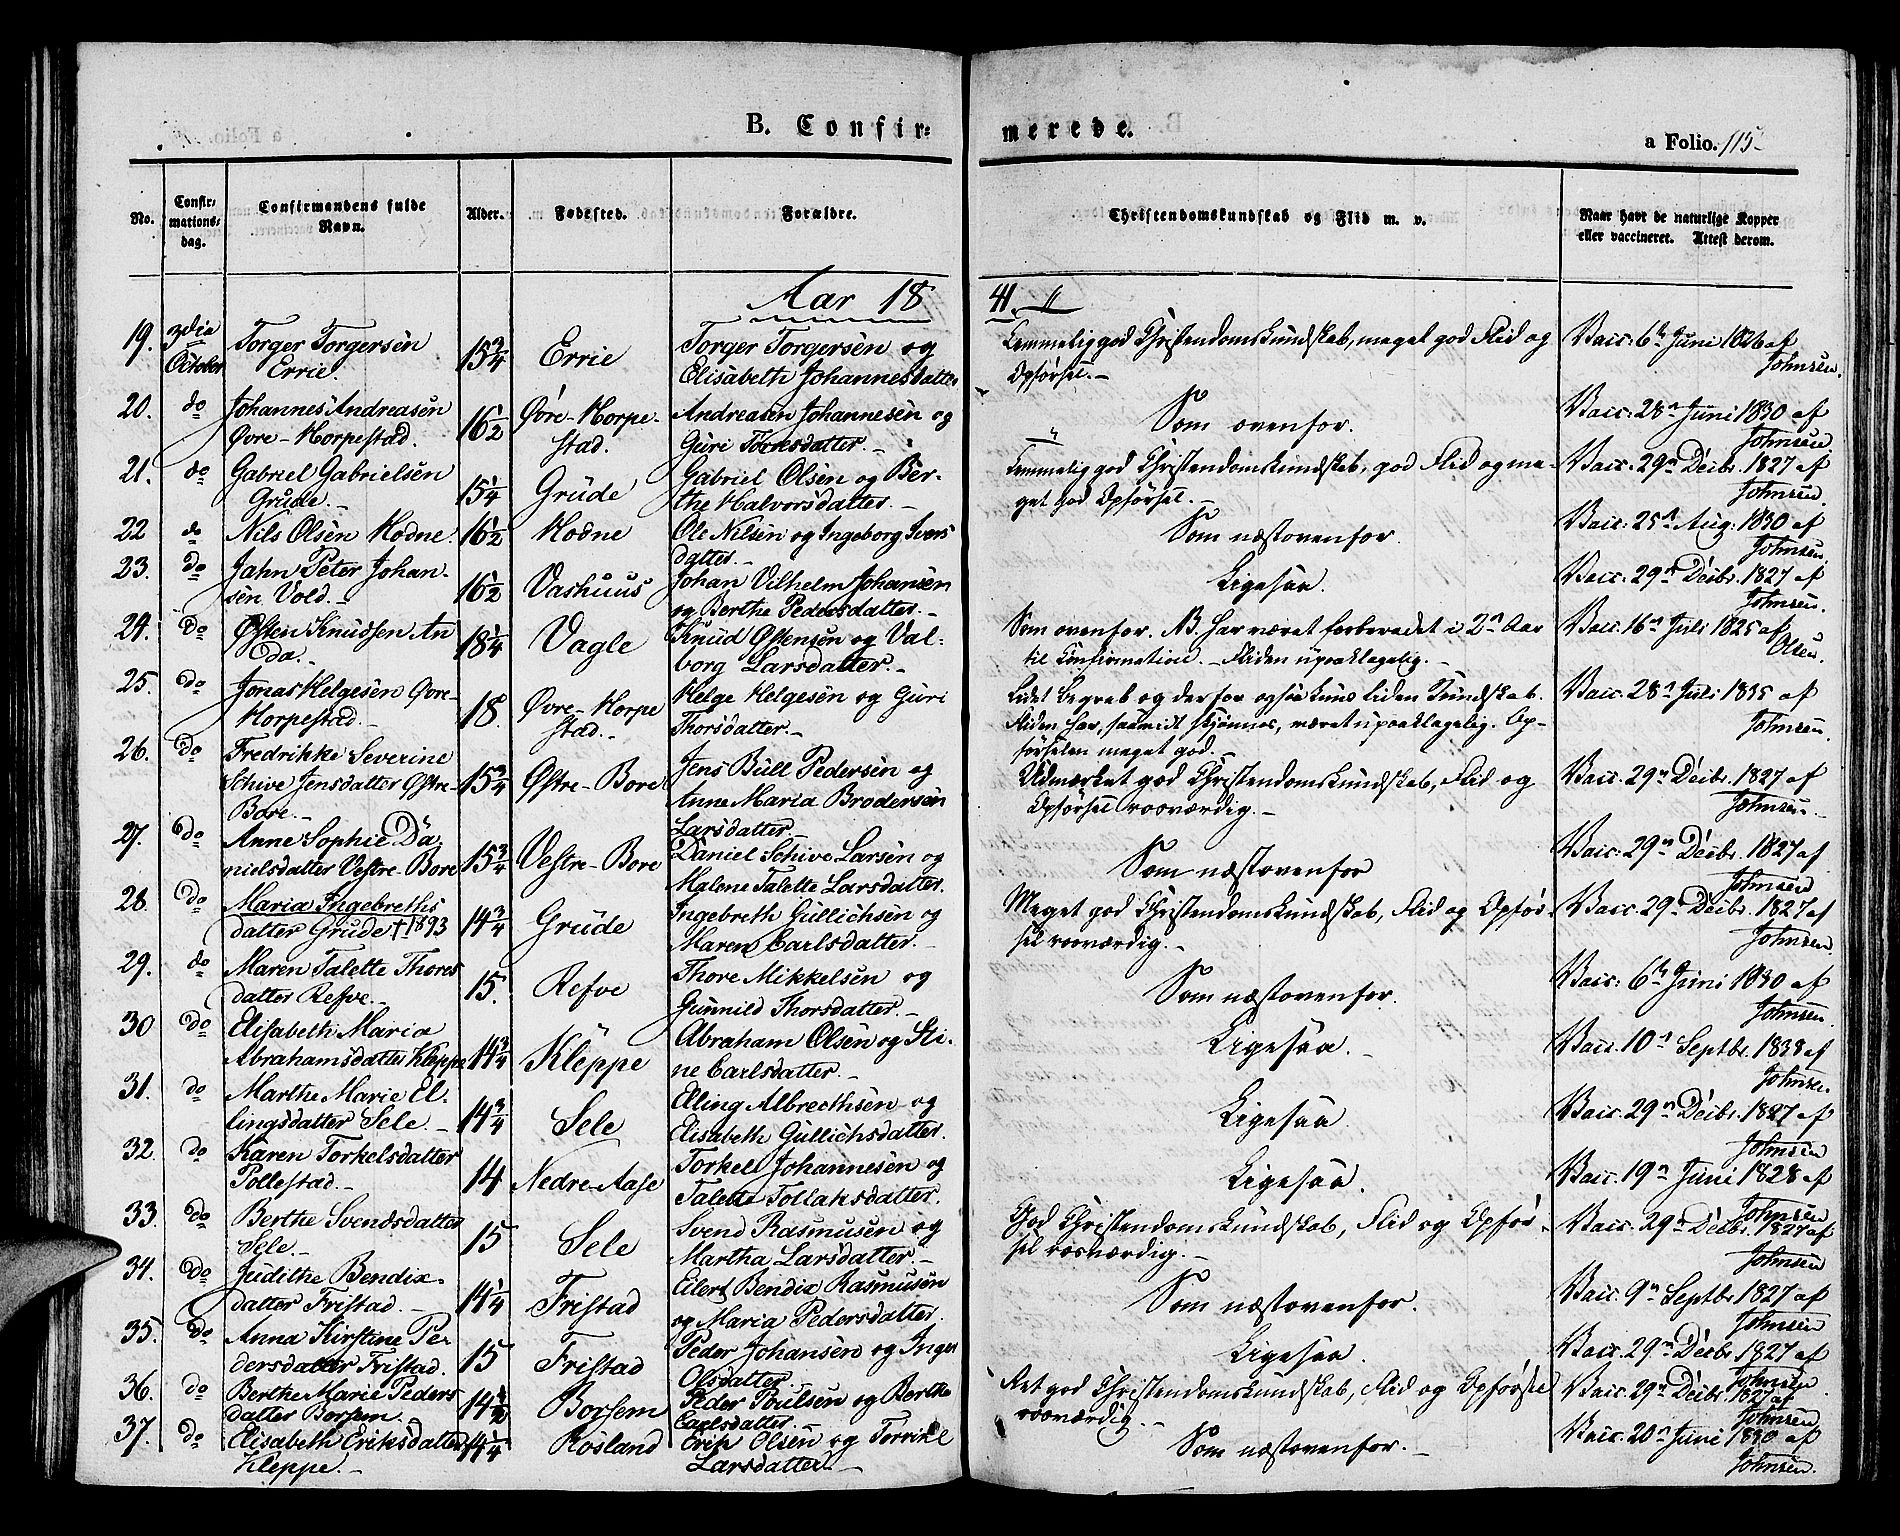 B. Confir=
merede.
a Folio. 115
No.
Confir= mations= dag.
Confirmandens fulde Navn.
Alder.
Fødested.
Forældre.
Christendomskundskab og Flid m. v.
Naar havt de naturlige Kopper eller vaccineret. Attest derom.
Aar 18
41.
19. 3die October Torger Torgersen Errie. 15 3/4 Errie Torger Torgersen og Elisabeth Johannesdatter
Temmelig god Christendomskundskab, meget god Flid og Opførsel.- Vacc. 6te Juni 1826 af Johnsen.
20. do Johannes Andreasen Øvre-Horpestad. 16 1/2 Øvre-Horpestad. Andreasen Johannesen og Guri Torresdatter.-
Som ovenfor. Vacc. 28n Juni 1830 af Johnsen
21. do Gabriel Gabrielsen Grude.- 15 1/4 Grude Gabriel Olsen og Berthe Halvorsdatter.-
Temmelig god Christendomskundskab, god Flid og meget god Opførsel.- Vacc. 29n Decbr. 1827 af Johnsen.
22 do Nils Olsen Hodne. 16 1/2 Hodne Ole Nilsen og Ingeborg Iversdatter.-
Som næstovenfor. Vacc. 25n Aug. 1830 af Johnsen.
23. do Jahn Peter Johansen Vold.- 16 1/2 Vashuus Johan Vilhelm Johansen og Berthe Pedersdatter.-
Ligesaa. Vacc. 29n Decbr. 1827 af Johnsen.
24. do Østen Knudsen Anda.- 18 1/4 Vagle Knud Østensen og Valborg Larsdatter.-
Som ovenfor. NB. har været forberedet i 2n Aar til Confirmation.- Fliden upaaklagelig.- Vacc. 16n Juli 1825 af Olsen.
25. do Jonas Helgesen Øvre-Horpestad.- 18. Øvre-Horpestad.- Helge Helgesen og Guri Thorsdatter.-
Lidet Begreb og derfor ogsaa kuns liden Kundskab. Fliden har, saavidt skjønnes, været upaaklagelig. Opførselen meget god.- Vacc. 28n Juli 1835 af Johnsen.
26. do Fredrikke Severine Schive Jensdatter Østre-Bore.- 15 3/4 Østre-Bore Jens Bull Pedersen og Anne Maria Brodersen Larsdatter.-
Udmærket god Christendomskundskab, Flid og Opførsel rosværdig.- Vacc. 29n Decbr. 1827 af Johnsen.-
27. do Anne Sophie Danielsdatter Vestre-Bore 15 3/4 Vestre-Bore Daniel Schive Larsen og Malene Talette Larsdatter.
Som næstovenfor Vacc. 29n Decbr. 1827 af Johnsen
28. do Maria Ingebrethsdatter Grude †1893 14 3/4 Grude Ingebreth Gullichsen og Maren Carlsdatter.-
Meget god Christendomskundskab, Flid og Opførsel rosværdig.- Vacc. 29n Decbr. 1827 af Johnsen.
29. do Maren Talette Thoresdatter Refve.- 15. Refve Thore Mikkelsen og Gunnild Thorsdatter.-
Som næstovenfor. Vacc. 6te Juni 1830 af Johnsen.
30 do Elisabeth Maria Abrahamsdatter Kleppe 14 3/4 Kleppe Abraham Olsen og Stine Carlsdatter.-
Ligesaa.- Vacc. 10n Septbr. 1838 af Johnsen.
31. do Marthe Marie Ellingsdatter Sele.- 14 3/4 Sele Elling Albrecthsen og Elisabeth Gullichsdatter.
Ligesaa Vacc. 29n Decbr. 1827 af Johnsen
32. do Karen Torkelsdatter Pollestad.- 14 Nedre-Aase Torkel Johannesen og Talette Tollaksdatter.
Ligesaa. Vacc. 19n Juni 1828 af Johnsen
33. do Berthe Svendsdatter Sele.- 15 Sele Svend Rasmusen og Martha Larsdatter.-
God Christendomskundskab, Flid og Opførsel rosværdig.- Vacc. 29n Decbr. 1827 af Johnsen
34. do Judithe Bendixdatter Fristad.- 14 1/4 Fristad Eilert Bendix Rasmusen og Maria Pedersdatter.
Som næstovenfor. Vacc. 9n Septbr. 1827 af Johnsen
35. do Anna Kirstine Pedersdatter Fristad. 15 Fristad Peder Johansen og Inger Olsdatter.-
Ligesaa. Vacc. 29n Decbr. 1827 af Johnsen.
36. do Berthe Marie Pedersdatter Borsem. 14 1/2 Borsem Peder Poulsen og Berthe Carlsdatter.-
Ret god Christendomskundskab, Flid og Opførsel rosværdig.- Vacc. 29n Decbr. 1827 af Johnsen
37. do Elisabeth Eriksdatter Kleppe.- 14 1/4 Rosland Erik Olsen og Torvild Larsdatter.-
Som næstovenfor.- Vacc. 20n Juni 1830 af Johnsen.